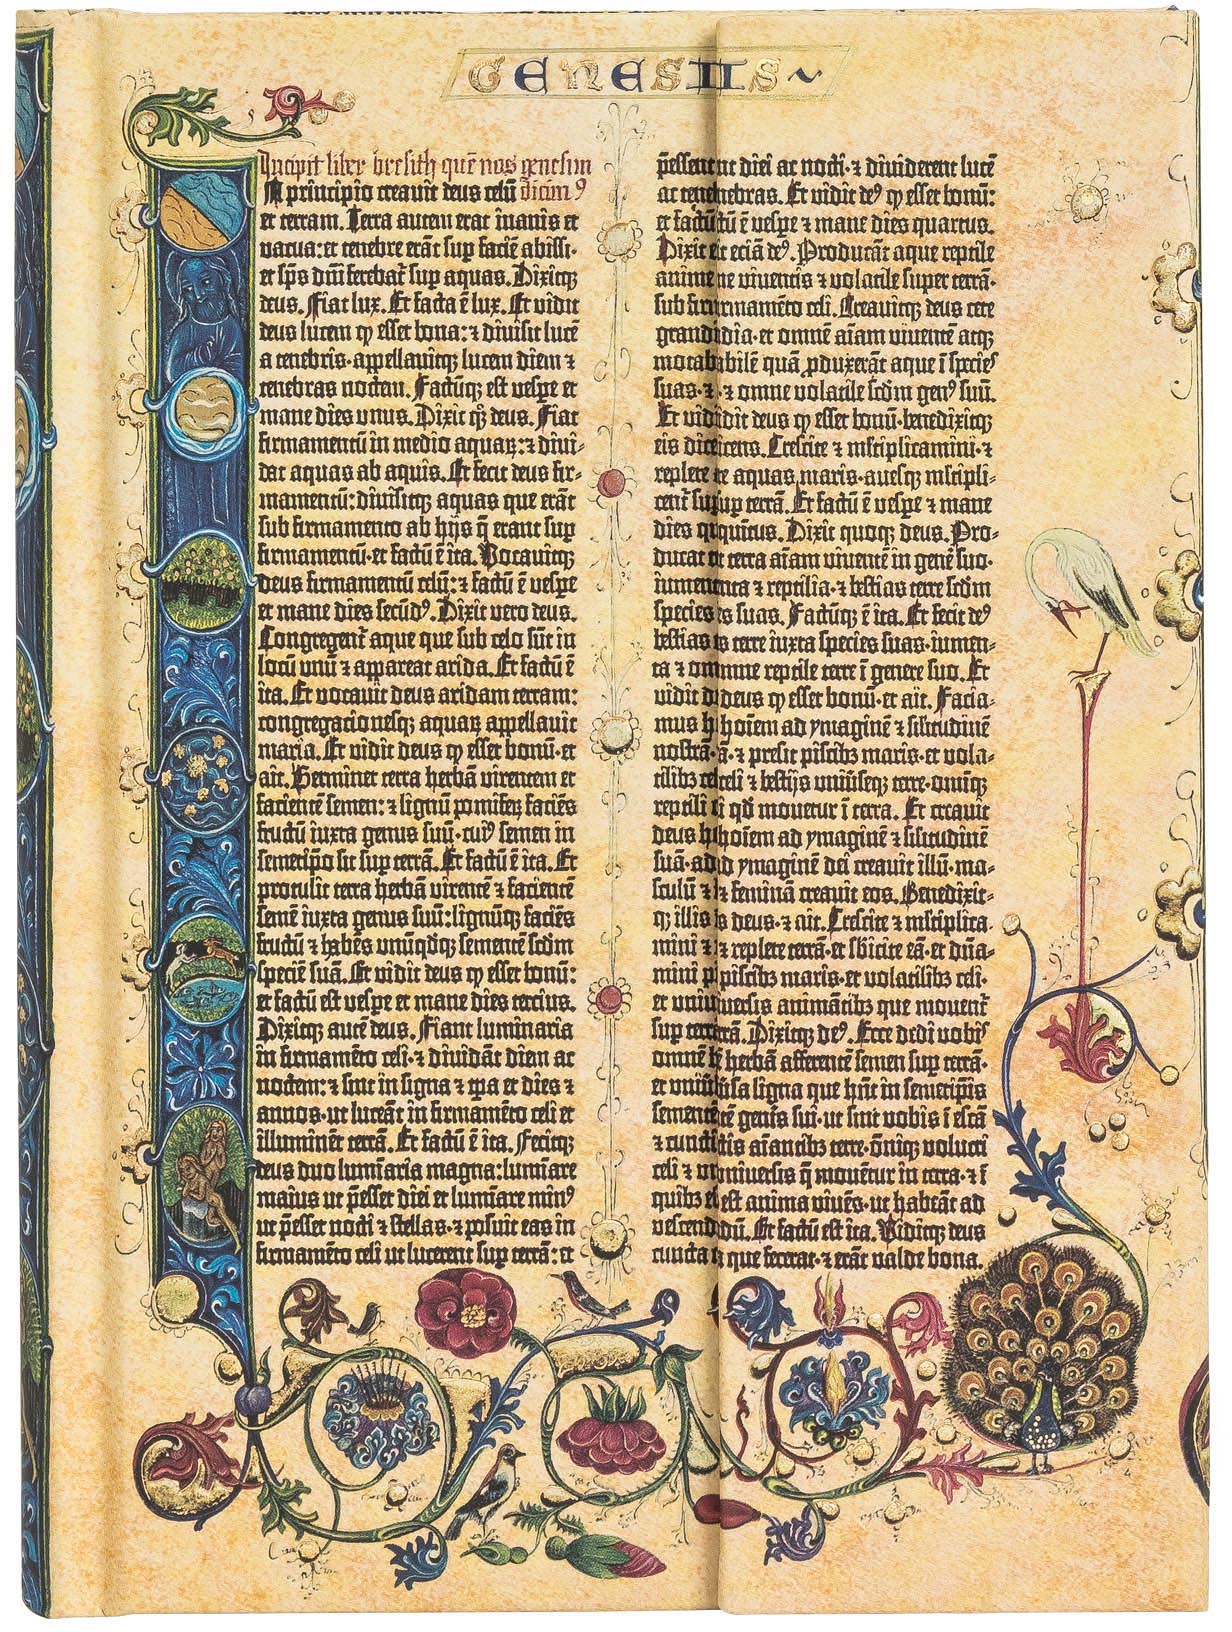 GENESIIS
Incipit liber bresith quē nos genesim
A principio creavit deus celū dicim⁹
et terram. Terra autem erat inanis et
vacua: et tenebre erāt sup faciē abissi·
et sp̄s dn̄i ferebat̄ sup aquas. Dixitq;
deus. Fiat lux. Et facta ē lux. Et vidit
deus lucem ꝙ esset bona: ⁊ divisit lucē
a tenebris· appellavitq; lucem diem ⁊
tenebras noctem. Factūq; est vesꝑe et
mane dies unus. Dixit qꝫ deus. Fiat
firmamentū in medio aquaꝝ: ⁊ divi-
dat aquas ab aquis. Et fecit deus fir-
mamentū: divisitq; aquas que erāt
sub firmamento ab hijs q̄ erant sup
firmamentū· et factū ē ita. Vocavitq;
deus firmamentū celū: ⁊ factū ē vesꝑe
et mane dies secūd⁹. Dixit vero deus.
Congregent̄ aque que sub celo sūt in
locū unū ⁊ appareat arida. Et factū ē
ita. Et vocavit deus aridam terram:
congregacionesq; aquaꝝ appellavit
maria. Et vidit deus ꝙ esset bonū· et
ait. Germinet terra herbā virentem et
facientē semen: ⁊ lignū pomiferꝫ faciēs
fructū iuxta genus suū· cui⁹ semen in
semetip̄o sit sup terrā. Et factū ē ita. Et
protulit terra herbā virentē ⁊ facientē
semē iuxta genus suū: lignūq; faciēs
fructū ⁊ habēs unūqdq; sementē scdm
speciē suā. Et vidit deus ꝙ esset bonū:
et factū est vesꝑe et mane dies tercius.
Dixitq; autē deus. Fiant luminaria
in firmamēto celi· ⁊ dividāt diem ac
noctem: ⁊ sint in signa ⁊ tꝑa et dies ⁊
annos· ut luceāt in firmamēto celi et
illuminēt terrā. Et factū ē ita. Fecitq;
deus duo luminaria magna: luminare
maius ut p̄esset diei et luminare min⁹
ut p̄esset nocti ⁊ stellas· ⁊ posuit eas in
firmamēto celi ut lucerent sup terrā: et
p̄essent diei ac nocti· ⁊ dividerent lucē
ac tenebras. Et vidit de⁹ ꝙ esset bonū:
et factū ē vesꝑe ⁊ mane dies quartus.
Dixit eciā de⁹. Producāt aque reptile
anime viventis ⁊ volatile super terrā·
sub firmamēto celi. Creavitq; deus cete
grandia· et omnē aīam viventē atq;
motabilē quā ꝓduxerāt aque ī species
suas· ⁊ omne volatile scdm gen⁹ suū.
Et vidit deus ꝙ esset bonū· benedixitq;
eis dicens. Crescite ⁊ ml̄tiplicamini· ⁊
replete aquas maris· avesq; ml̄tipli-
cent̄ sup terrā. Et factū ē vesꝑe ⁊ mane
dies quītus. Dixit quoq; deus. Pro-
ducat terra aīam viventē in genē suo·
iumenta ⁊ reptilia· ⁊ bestias terre scdm
species suas. Factūq; ē ita. Et fecit de⁹
bestias terre iuxta species suas· iumen-
ta ⁊ omne reptile terre ī genere suo. Et
vidit deus ꝙ esset bonū· et ait. Facia-
mus hoīem ad ymaginē ⁊ sil̄itudinē
nostrā· ⁊ presit piscibꝫ maris· et vola-
tilibꝫ celi ⁊ bestijs univseq; terre· omīq;
reptili qd̄ movetur ī terra. Et creavit
deus hoīem ad ymaginē ⁊ sil̄itudinē
suā· ad ymaginē dei creavit illū· ma-
sculū ⁊ feminā creavit eos. Benedixit-
q; illis deus· ⁊ ait. Crescite ⁊ ml̄tiplica-
mini ⁊ replete terrā· et sb̄icite eā· et dn̄a-
mini piscibꝫ maris· et volatilibꝫ celi·
et universis animātibꝫ que movent̄
sup terrā. Dixitq; de⁹. Ecce dedi vobis
omnē herbā afferentē semen sup terrā·
et univsa ligna que hn̄t in semetip̄is
sementē genīs sui· ut sint vobis ī escā
⁊ cunctis aīantibꝫ terre· om̄iq; volucri
celi ⁊ universis q̄ movētur in terra· ⁊ ī
quibꝫ est anima vivēs· ut habeāt ad
vescendū. Et factū est ita. Viditq; deus
cuncta que fecerat· ⁊ erāt valde bona.